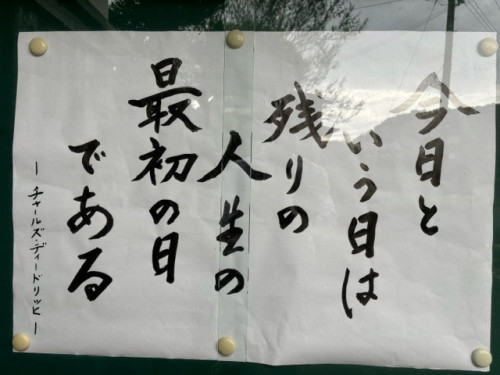 今日と
いう日は
残りの
人生の
最初の日
である
ーチャールズ・ディードリッヒー